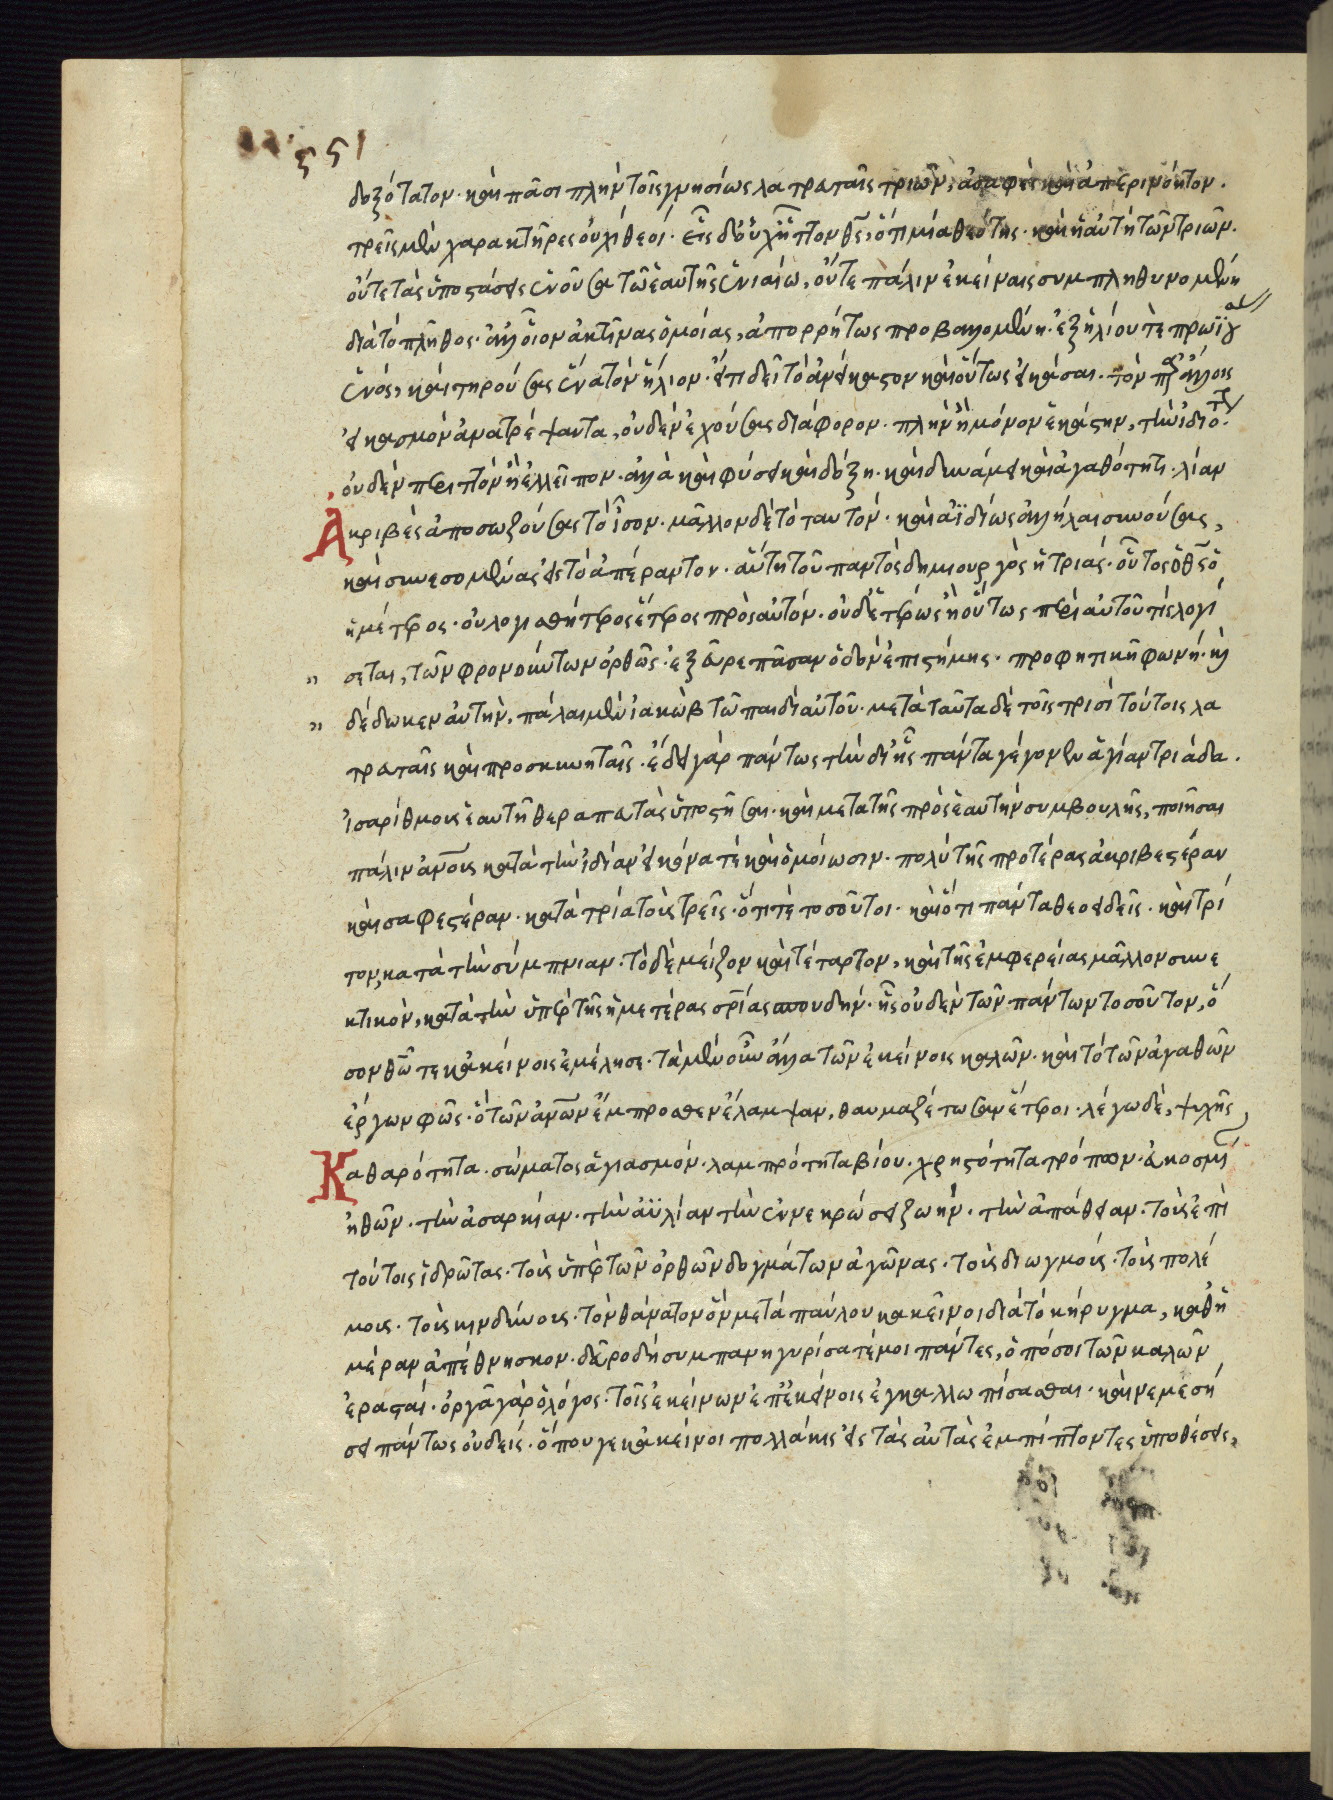 δοξότατον· καὶ πᾶσι πλὴν τοῖς γνησίως λατρευταῖς τριῶν, ἀσαφὲς καὶ ἀπερινόητον.
τρεῖς μὲν χαρακτῆρες οὐχὶ θεοί· εἷς δ' οὐχ ἧττον θς, ὅτι μία θεότης· καὶ ἡ αὐτὴ τῶν τριῶν.
οὔτε τὰς ὑποστάσεις ἑνοῦσα τῷ ἑαυτῆς ἑνιαίω, οὔτε πάλιν ἐκείναις συμπληθυνομένη
διὰ τὸ πλῆθος· ἀλλ' οἷον ἀκτῖνας ὁμοίας, ἀπορρήτως προβαλλομένη· ἐξ ἡλίου τὲ πρωϊ
ἑνὸς, καὶ τηρούσας ἕνα τὸν ἥλιον· εἴτι δεῖ τὸ ἀνείκαστον καὶ οὕτως εἰκάσαι· τὸν παρ' ἄλλοις
εἰκασμὸν ἀνατρέψαντα, οὐδὲν ἐχούσας διάφορον· πλὴν ἢ μόνον ἑκάστην, τὴν ἰδιοτη
οὐδὲν περιττὸν ἢ ἐλλεῖπον· ἀλλὰ καὶ φύσει καὶ δόξη· καὶ δυνάμει καὶ ἀγαθότητι· λίαν
Ἀκριβὲς ἀποσωζούσας τὸ ἶσον· μᾶλλον δὲ τὸ ταυτόν· καὶ ἀϊδίως ἀλλήλαι συνούσας,
καὶ συνεσομένας εἰς τὸ ἀπέραντον· αὕτη τοῦ παντὸς δημιουργὸς ἡ τριάς· οὗτος ὁ θς ὁ
ἡμέτερος· οὐ λογισθήσεται ἕτερος πρὸς αὐτόν· οὐδ' ἑτέρως ἢ οὕτως περὶ αὐτοῦ τίς λογί
σεται, τῶν φρονούντων ὀρθῶς· ἐξεῦρε πᾶσαν ὁδὸν ἐπιστήμης· προφητικὴ φωνή· καὶ
δέδωκεν αὐτὴν, πάλαι μὲν ἰακὼβ τῷ παιδὶ αὐτοῦ· μετὰ ταῦτα δὲ τοῖς τρισὶ τούτοις λα
τρευταῖς καὶ προσκυνηταῖς· ἔδει γὰρ πάντως τὴν δι' ἧς πάντα γέγονεν ἁγίαν τριάδα.
ἰσαρίθμους ἑαυτῆ θεραπευτὰς ὑποστῆσαι· καὶ μετὰ τῆς πρὸς ἑαυτὴν συμβουλῆς, ποιῆσαι
πάλιν ἀνους κατὰ τὴν ἰδίαν εἰκόνα τὲ καὶ ὁμοίωσιν· πολὺ τῆς προτέρας ἀκριβεστέραν
καὶ σαφεστέραν· κατὰ τρία τοὺς τρεῖς· ὅτι τὲ τοσοῦτοι· καὶ ὅτι πάντα θεοειδεῖς· καὶ τρί
τον, κατὰ τὴν σύμπνιαν· τὸ δὲ μείζον καὶ τέταρτον, καὶ τῆς ἐμφερείας μᾶλλον συνε
κτικὸν, κατὰ τὴν ὑπὲρ τῆς ἡμετέρας σρίας σπουδήν· ἧς οὐδὲν τῶν πάντων τοσοῦτον, ὅ
σον θῶ τε κἀκείνοις ἐμέλησε· τὰ μὲν οὖν ἄλλα τῶν ἐκείνοις καλῶν· καὶ τὸ τῶν ἀγαθῶν
ἔργων φῶς· ὃ τῶν ἀνων ἔμπροσθεν ἔλαμψαν, θαυμαζέτωσαν ἕτεροι· λέγω δὲ, ψυχῆς
Καθαρότητα· σώματος ἁγιασμόν· λαμπρότητα βίου· χρηστότητα τρόπων· εὐκοσμί
ἠθῶν· τὴν ἀσαρκίαν· τὴν ἀϋλίαν τὴν ἐν νεκρώσει ζωήν· τὴν ἀπάθειαν· τοὺς ἐπὶ
τούτοις ἱδρῶτας· τοὺς ὑπὲρ τῶν ὀρθῶν δογμάτων ἀγῶνας· τοὺς διωγμούς· τοὺς πολέ
μους· τοὺς κινδύνους· τὸν θάνατον ὃν μετὰ παύλου κακεῖνοι διὰ τὸ κήρυγμα, καθ' ἡ
μέραν ἀπέθνησκον· δεῦρο δὴ συμπανηγυρίσατέ μοι πάντες, ὁπόσοι τῶν καλῶν
ἐρασταί· ὀργᾶ γὰρ ὁ λόγος· τοῖς ἐκείνων ἐπ' ἐκείνοις ἐγκαλλωπίσασθαι· καὶ νεμεσή
σει πάντως οὐδείς· ὅπου γε κἀκείνοι πολλάκις εἰς τὰς αὐτὰς ἐμπίπτοντες ὑποθέσεις,